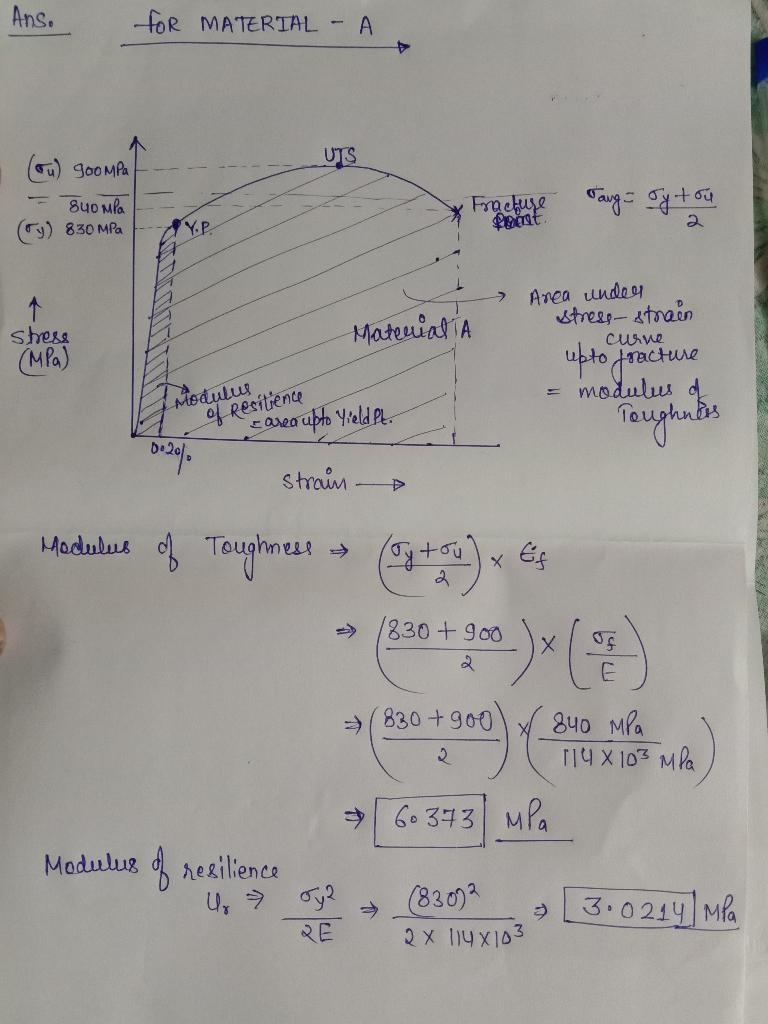 Ans. for MATERIAL - A
UTS
(σu) 900MPa
840 MPa
(σy) 830 MPa
Y.P.
Fracture
Point.
σavg = σy + σu / 2
↑
Stress
(MPa)
Material A
Area under
stress-strain
curve
upto fracture
= modulus of
Toughness
Modulus
of Resilience
= area upto Yield Pt.
0.2%
Strain →
Modulus of Toughness ⇒ (σy + σu / 2) × Ɛf
⇒ (830 + 900 / 2) × (σf / E)
⇒ (830 + 900 / 2) × (840 MPa / 114 × 10³ MPa)
⇒ 6.373 MPa
Modulus of resilience
Ur ⇒ σy² / 2E ⇒ (830)² / 2 × 114 × 10³ ⇒ 3.0214 MPa